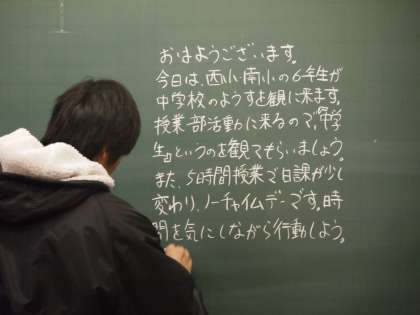 おはようございます。
今日は、西小・南小の6年生が
中学校のようすを観に来ます。
授業・部活動に来るので、『中学
生』というのを観てもらいましょう。
また、5時間授業で日課が少し
変わり、ノーチャイムデーです。時
間を気にしながら行動しよう。